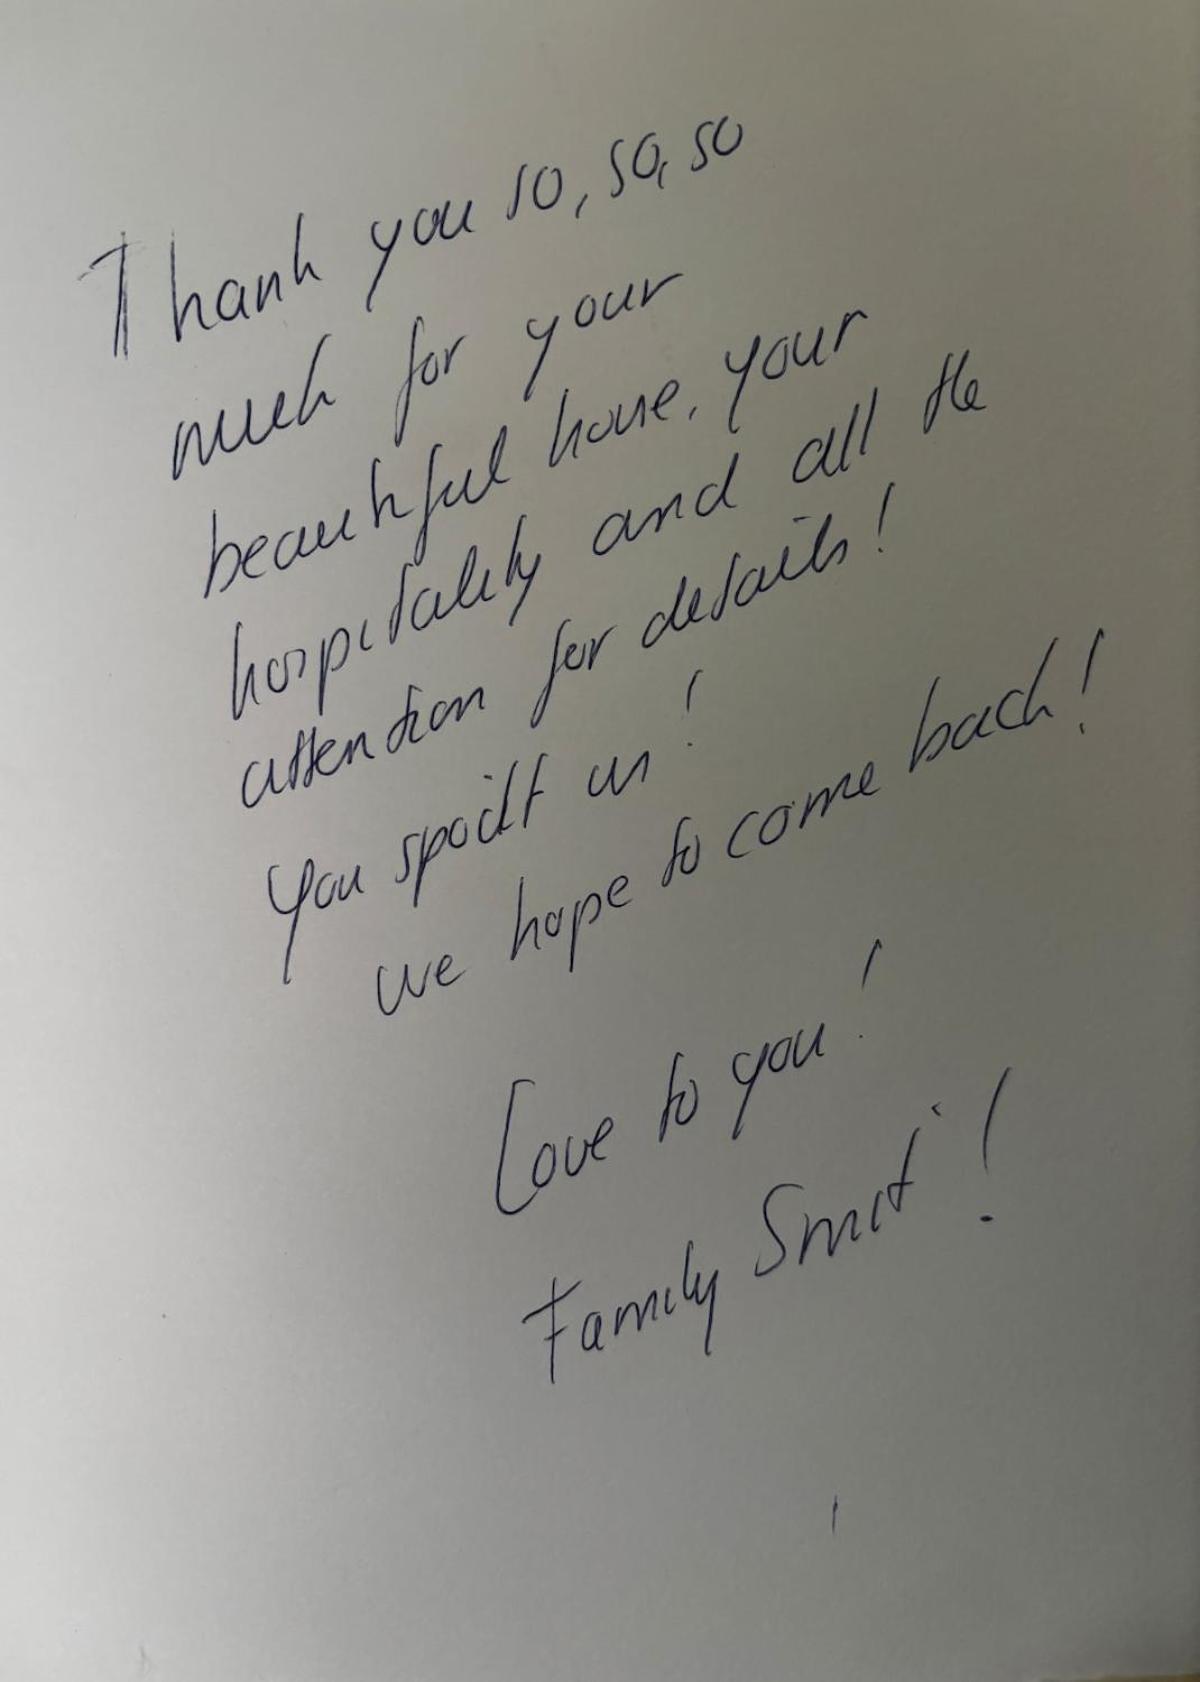 Thank you so, so, so
much for your
beautiful house, your
hospitality and all the
attention for details!
You spoilt us!
we hope to come back!
Love to you!
Family Smit!